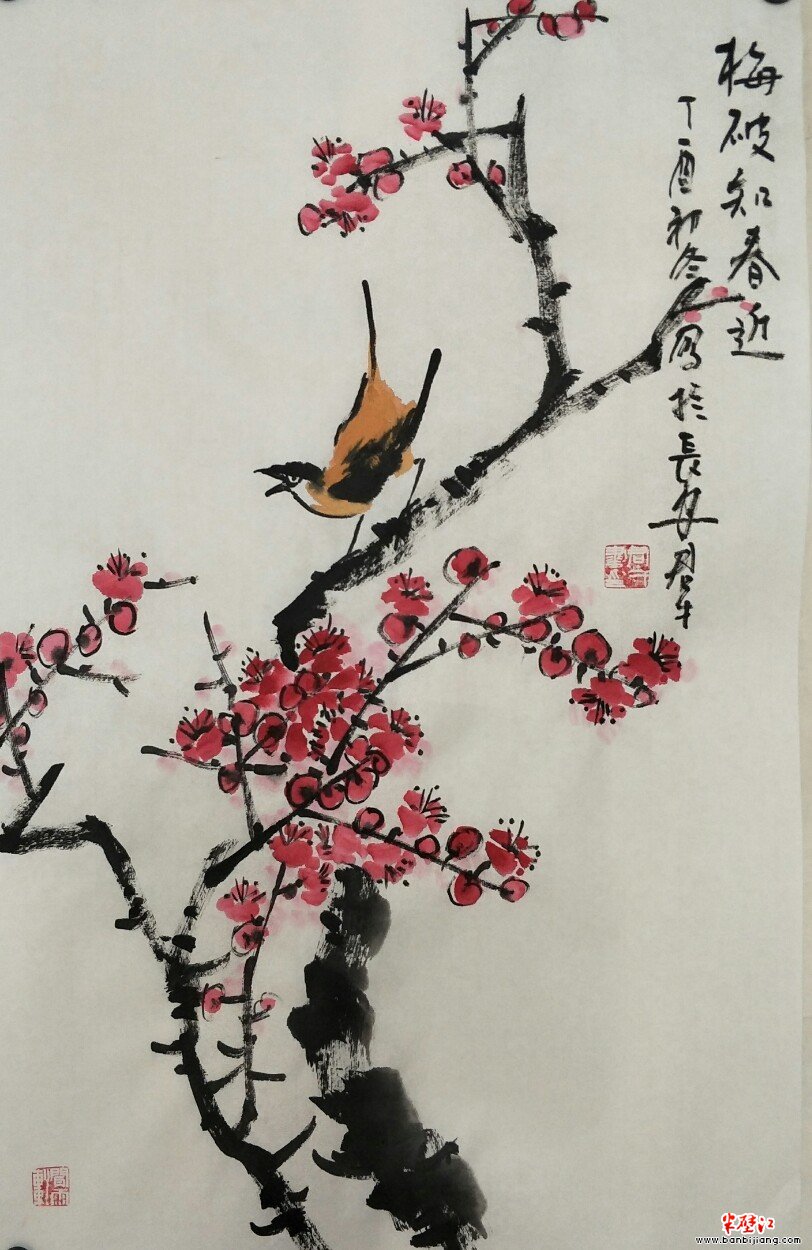 梅破知春近
丁酉初冬写於長安君平
半壁江
www.banbijiang.com